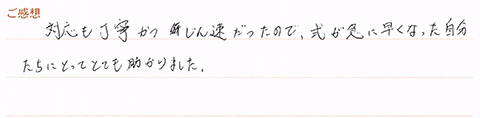 ご感想
対応も丁寧かつ じん速だったので、式が急に早くなった自分
たちにとってとても助かりました。